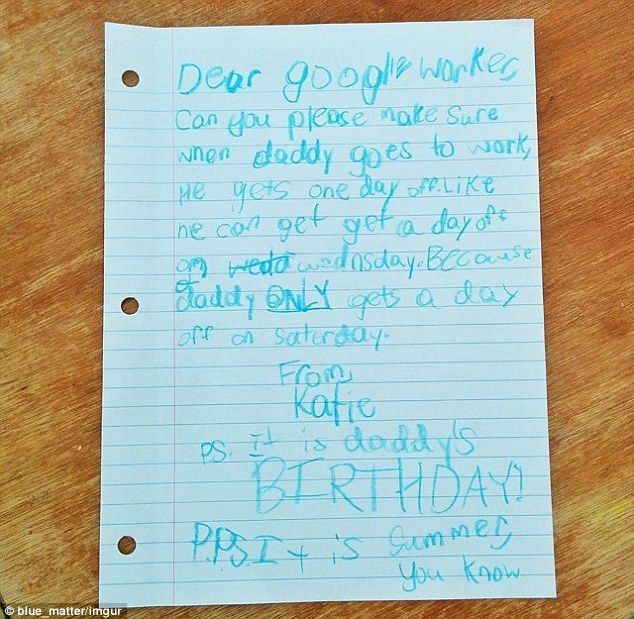 Dear google worker,
Can you please make sure
when daddy goes to work,
He gets one day off. Like
he can get get a day off
on wedd wednsday. Because
daddy ONLY gets a day
off on saturday.
From,
Katie
PS. It is daddy's
BIRTHDAY!
P.P.S. It is summer,
you know
© blue_matter/Imgur